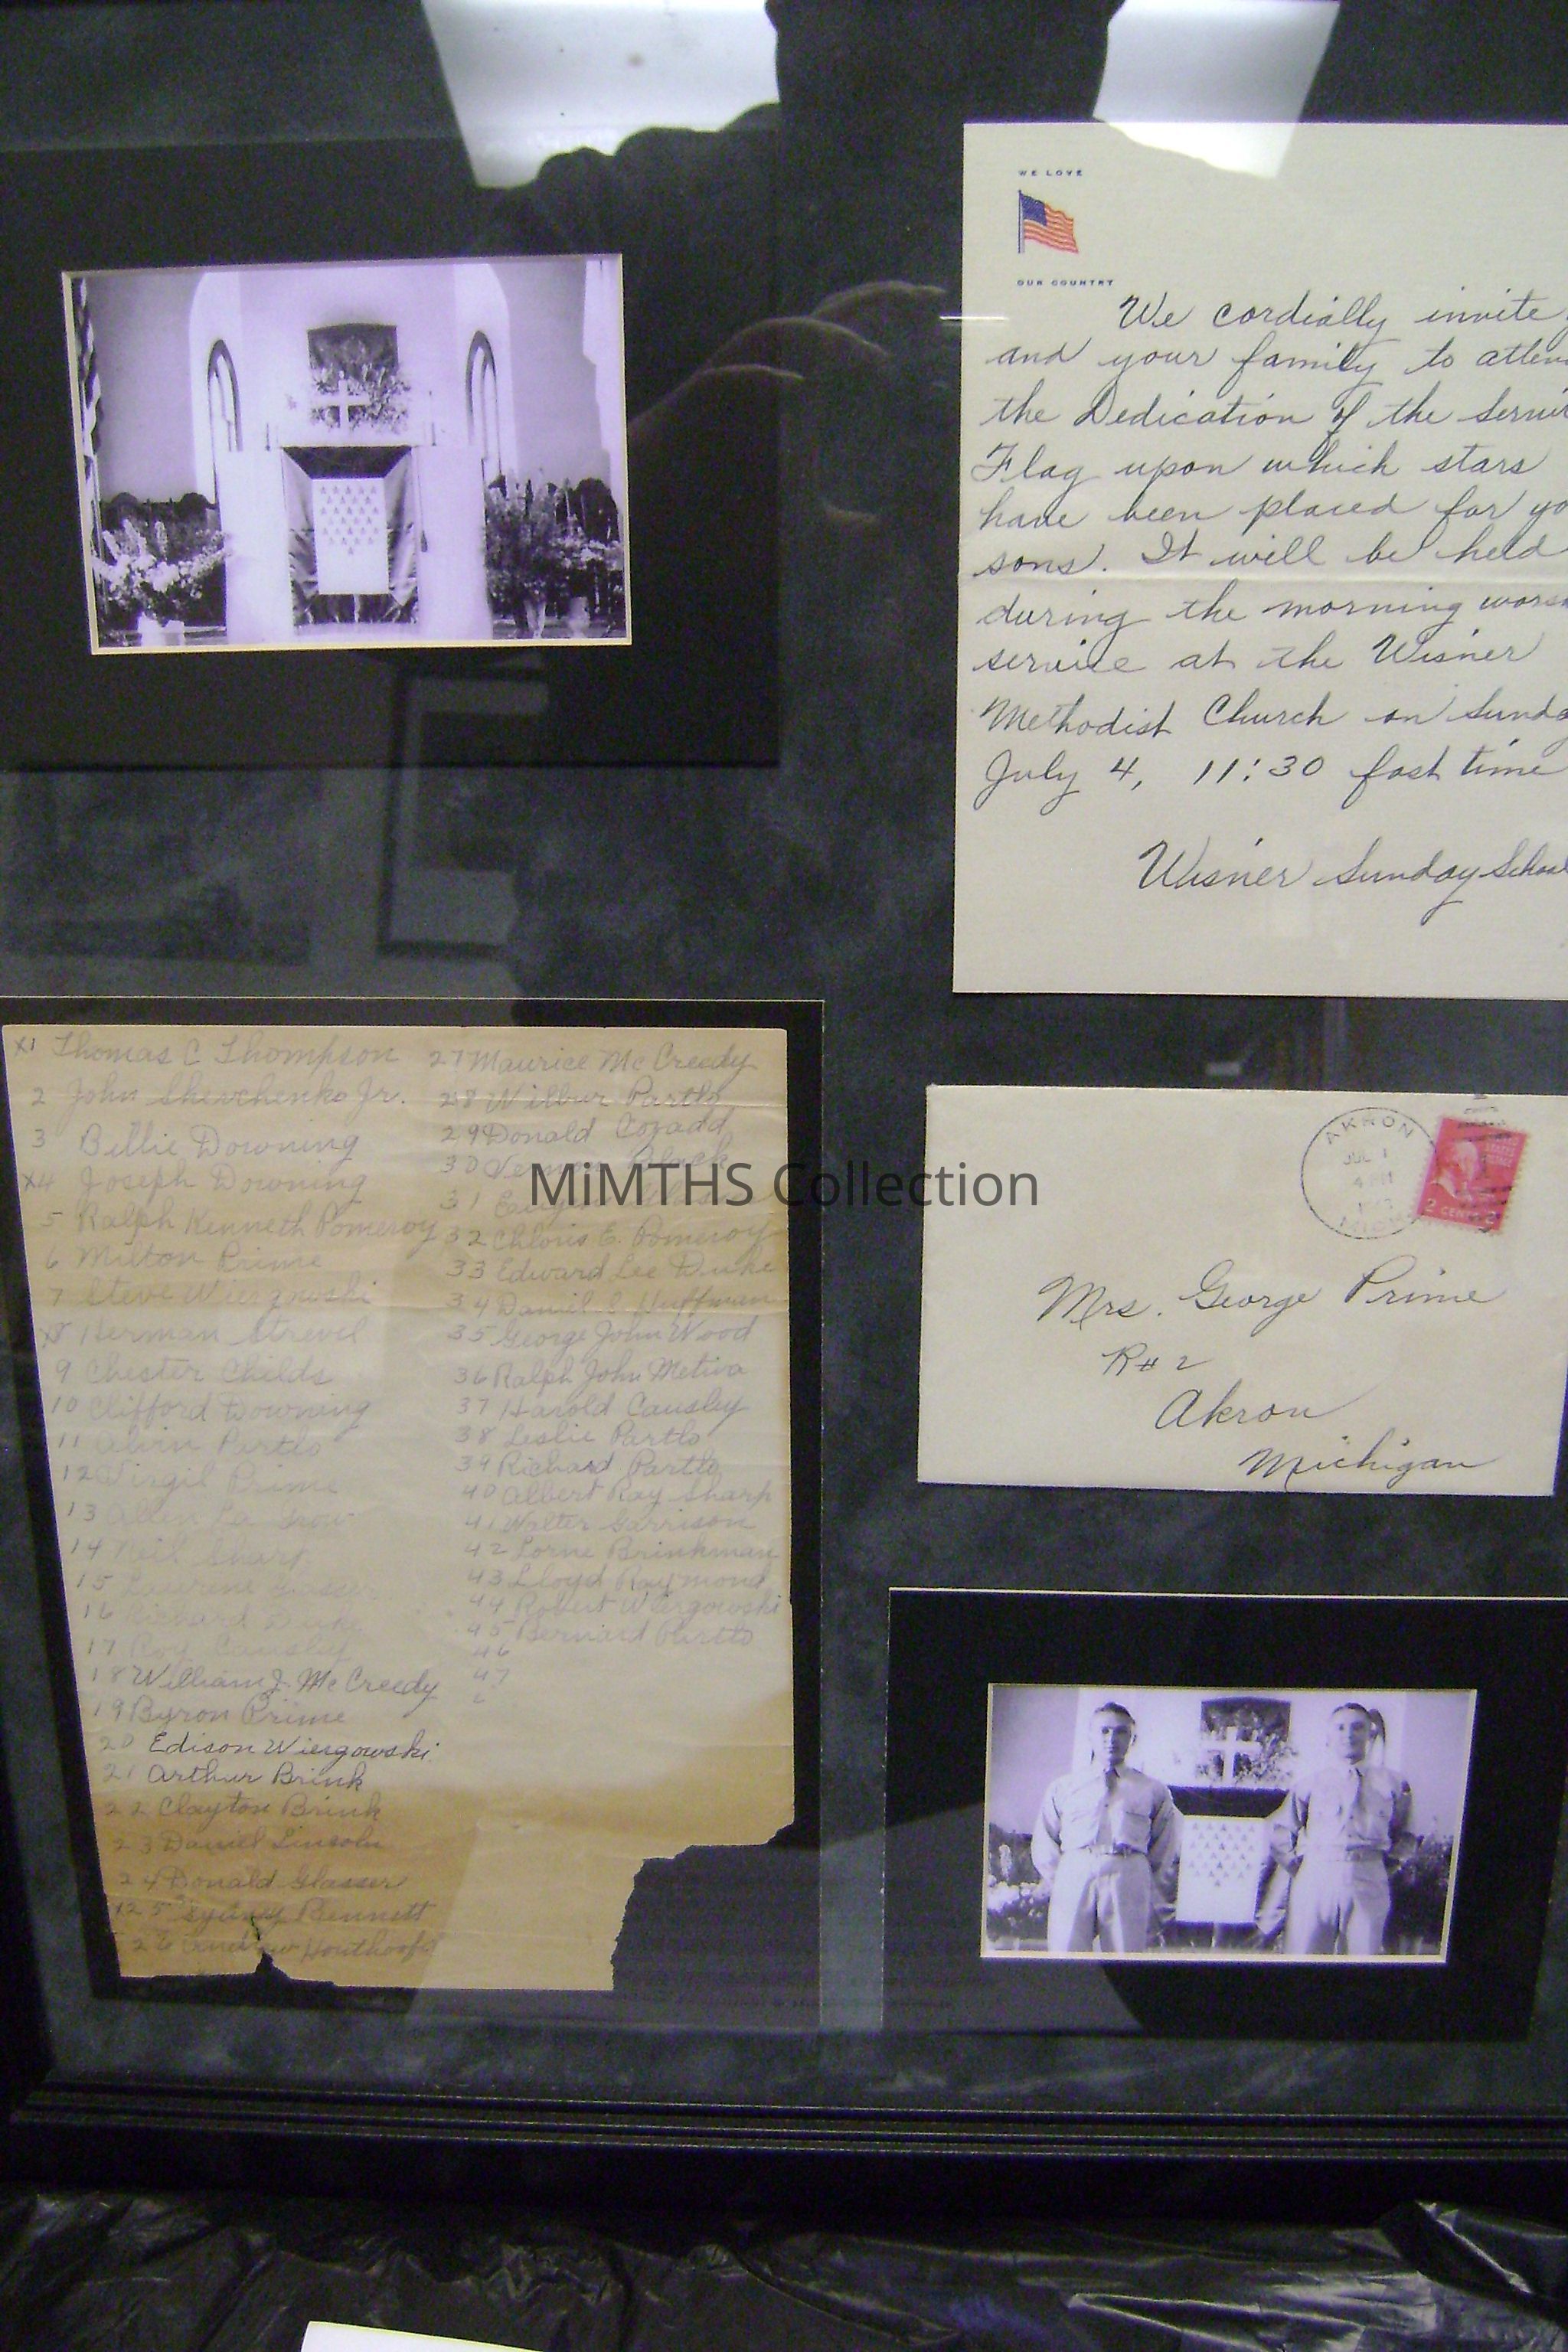 WE LOVE
OUR COUNTRY
We cordially invite
and your family to atten
the Dedication of the Servi
Flag upon which stars
have been placed for yo
sons. It will be held
during the morning wors
service at the Wisner
Methodist Church on Sunda
July 4, 11:30 fast time
Wisner Sunday School
X1 Thomas C Thompson
2 John Shevchenko Jr.
3 Billie Downing
X4 Joseph Downing
5 Ralph Kenneth Pomeroy
6 Milton Prime
7 Steve Wiergowski
X8 Herman Strevel
9 Chester Childs
10 Clifford Downing
11 Alvin Partlo
12 Virgil Prime
13 Allen La
14 Neil Sharp
15
16 Richard Duke
17 Roy Causley
18 William J. McCreedy
19 Byron Prime
20 Edison Wiergowski
21 Arthur Brink
22 Clayton Brink
23 Daniel Lincoln
24 Donald Glasser
X25 Sydney Bennett
26 Andrew Houthoofd
27 Maurice McCreedy
28 Wilbur Partlo
29 Donald Cozadd
30 Black
31
32 Chloris E. Pomeroy
33 Edward Lee Duke
34 Daniel S Huffman
35 George John Wood
36 Ralph John Metiva
37 Harold Causley
38 Leslie Partlo
39 Richard Partlo
40 Albert Ray Sharp
41 Walter Garrison
42 Lorne Brinkman
43 Lloyd Raymond
44 Robert Wiergowski
45 Bernard Partlo
46
47
MiMTHS Collection
AKRON
JUL 1
MICH
2 CENTS 2
Mrs. George Prime
R#2
Akron
Michigan